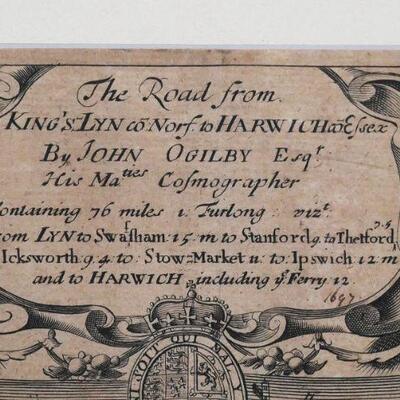 The Road from
KING'S LYN cõ Norf. to HARWICH cõ Essex
By JOHN OGILBY Esqr.
His Maties Cosmographer
Containing 76 miles 1. Furlong: vizt.
from LYN to Swafsham: 15: m to Stanford 9. to Thetford, 7.5
Icksworth 9.4 to: Stow=Market 11: to: Ipswich 12 m
and to HARWICH including ye Ferry 12
1697
NI SOIT QUI MAL Y